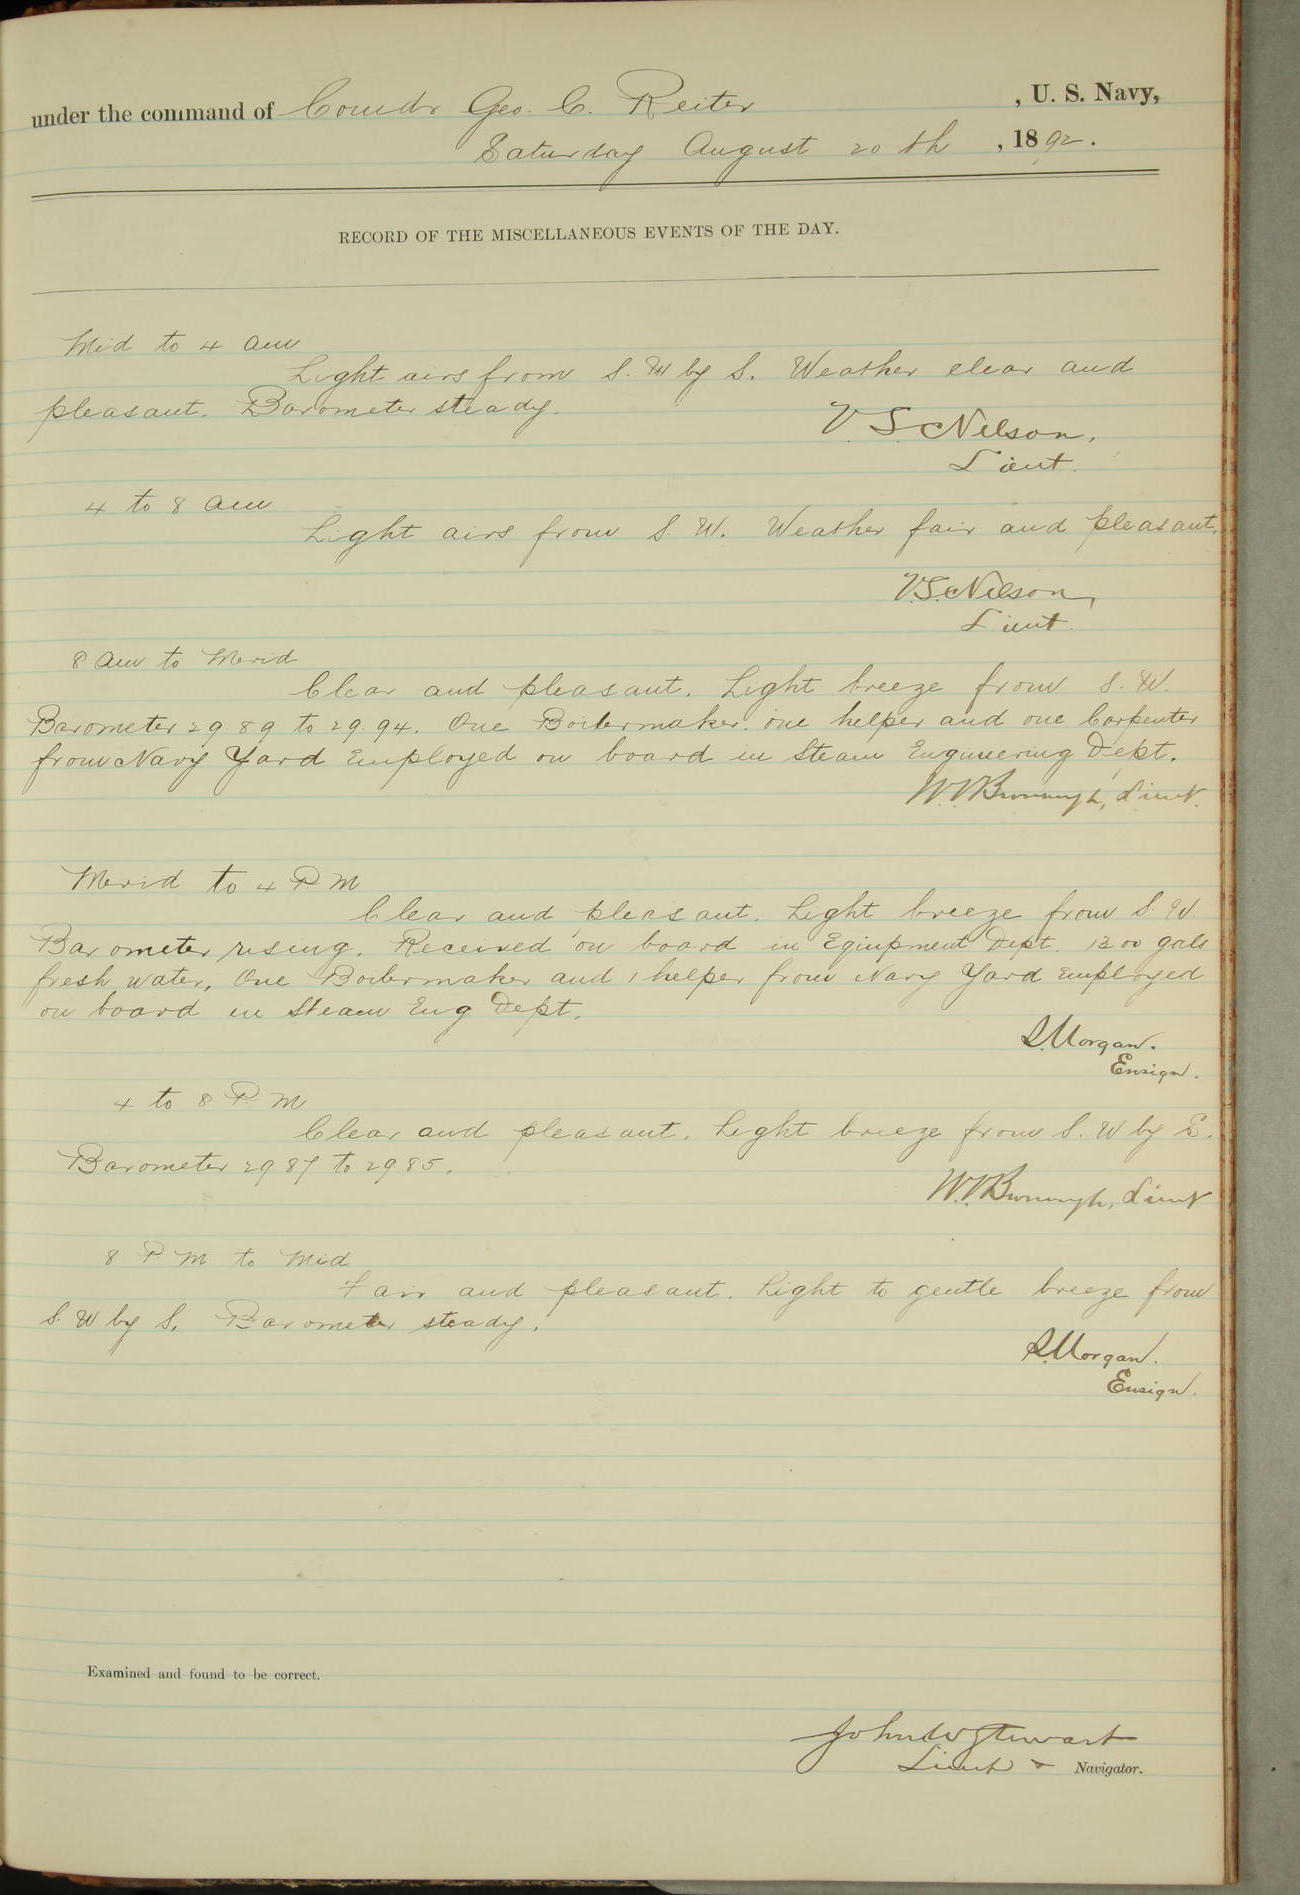 under the command of Comdr Geo. C. Reiter, U. S. Navy,
Saturday August 20th, 1892.
RECORD OF THE MISCELLANEOUS EVENTS OF THE DAY.
Mid to 4 am
Light airs from S. W by S. Weather clear and
pleasant. Barometer steady.
V. S. Nelson.
Lieut.
4 to 8 am
Light airs from S. W. Weather fair and pleasant.
V. S. Nelson,
Lieut.
8 am to Merid
Clear and pleasant. Light breeze from S. W.
Barometer 29.89 to 29.94. One Boilermaker. one helper and one Carpenter
from Navy Yard Employed on board in Steam Engineering Dept.
Lieut.
Merid to 4 P M
Clear and pleasant. Light breeze from S. W.
Barometer rising. Received on board in Equipment Dept. 1300 gals
fresh water, One Boilermaker and 1 helper from Navy Yard Employed
on board in Steam Eng Dept.
Morgan.
Ensign.
4 to 8 P M
Clear and pleasant. Light breeze from S. W by S.
Barometer 29 87 to 29 85.
Lieut
8 P M to Mid
Fair and pleasant. Light to gentle breeze from
S. W by S. Barometer steady.
Morgan.
Ensign.
Examined and found to be correct.
John W Stewart
Lieut & Navigator.